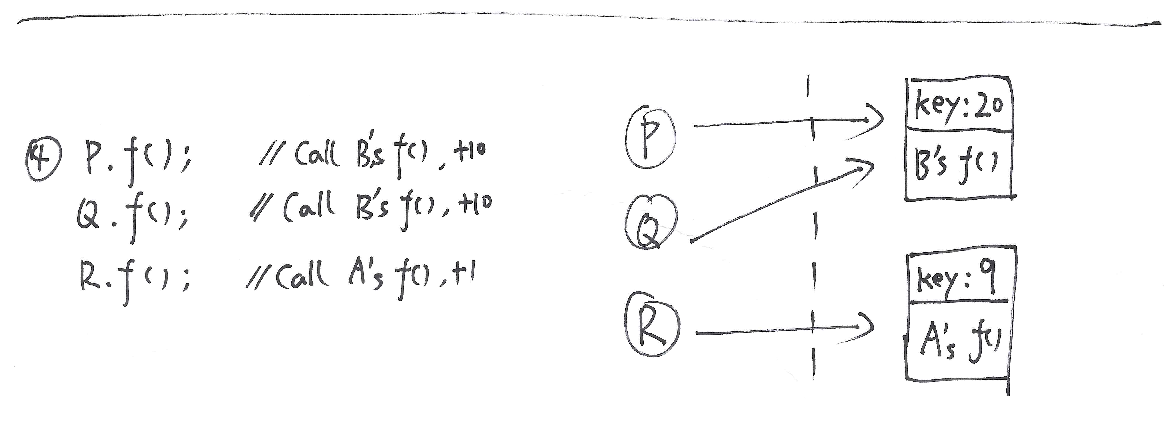 ④ P.f(); // Call B's f(), +10
Q.f(); // Call B's f(), +10
R.f(); // Call A's f(), +1
P
Q
R
key:20
B's f()
key:9
A's f()